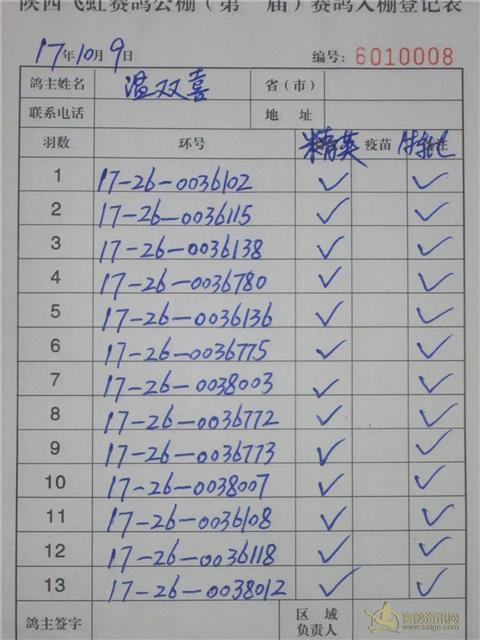 陕西飞虹赛鸽公棚（第 届）赛鸽入棚登记表
17年10月9日 编号：6010008
鸽主姓名 温双喜 省（市）
联系电话 地 址
羽数 环号 精英 疫苗
1 17-26-0036102 ✓ ✓
2 17-26-0036115 ✓ ✓
3 17-26-0036138 ✓ ✓
4 17-26-0036780 ✓ ✓
5 17-26-0036136 ✓ ✓
6 17-26-0036775 ✓ ✓
7 17-26-0038003 ✓ ✓
8 17-26-0036772 ✓ ✓
9 17-26-0036773 ✓ ✓
10 17-26-0038007 ✓ ✓
11 17-26-0036108 ✓ ✓
12 17-26-0036118 ✓ ✓
13 17-26-0038012 ✓ ✓
鸽主签字 区 域
负责人
赛鸽资讯网
www.saige.com